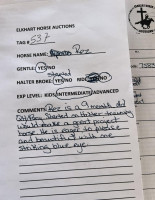 ELKHART HORSE AUCTIONS
TAG # 537
HORSE NAME: Roz
GENTLE: YES/NO
Started
HALTER BROKE: YES/NO RIDE: YES/NO
EXP LEVEL: KIDS/INTERMEDIATE/ADVANCED
COMMENTS: Roz is a 9 month old
Started on Halter training
would make a great project
horse. He is eager to please
and beautiful with one
striking blue eye.